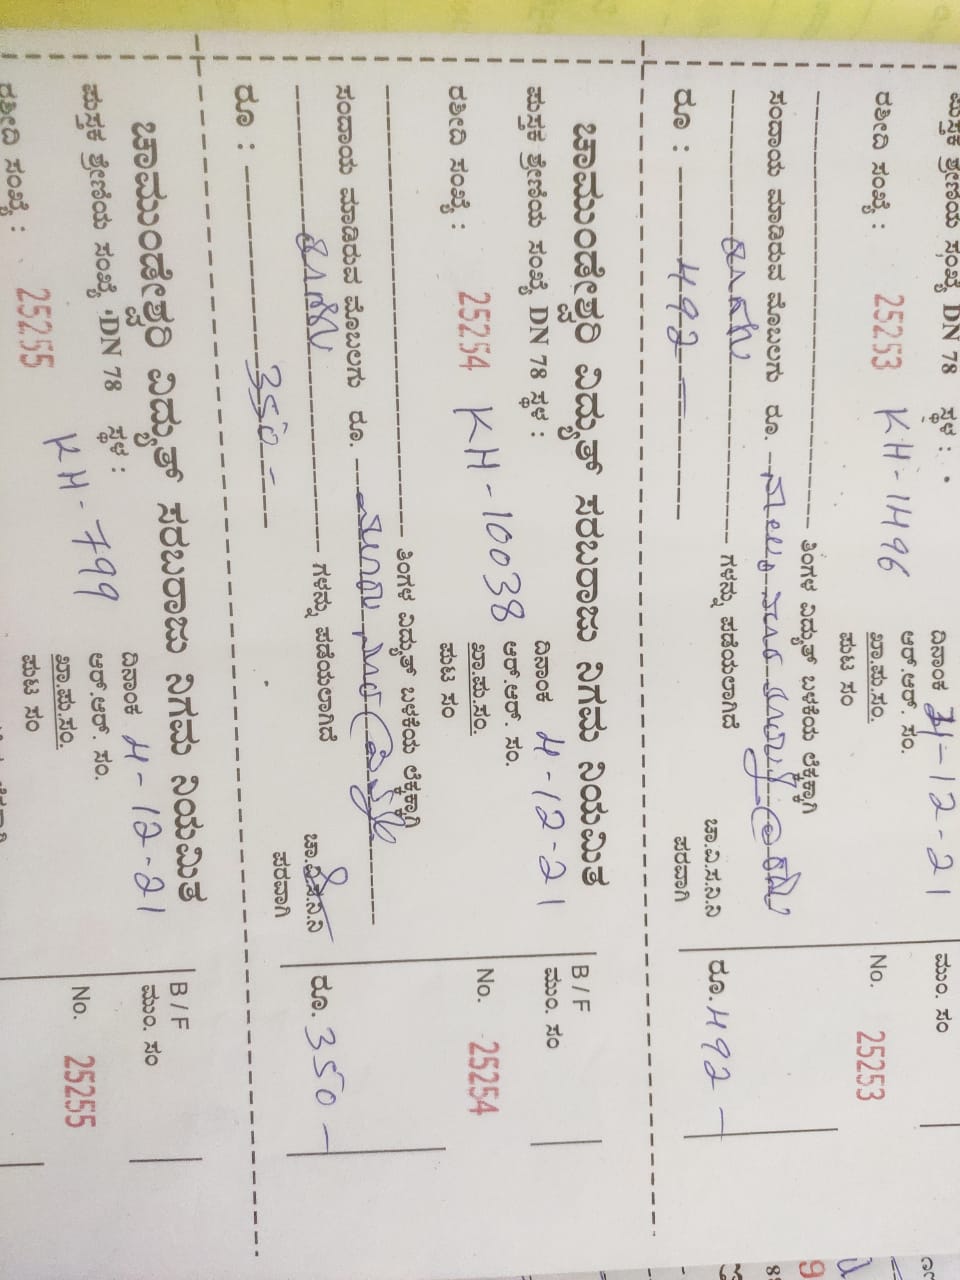 ಪುಸ್ತಕ ಶ್ರೇಣಿಯ ಸಂಖ್ಯೆ DN 78 ಸ್ಥಳ :
ದಿನಾಂಕ 4-12-21
ಮುಂ. ಸಂ
ರಶೀದಿ ಸಂಖ್ಯೆ : 25253 KH-1496
ಆರ್.ಆರ್. ಸಂ.
ಖಾ.ಪು.ಸಂ.
ಪುಟ ಸಂ
No. 25253
ತಿಂಗಳ ವಿದ್ಯುತ್ ಬಳಕೆಯ ಲೆಕ್ಕಕ್ಕಾಗಿ
ಸಂದಾಯ ಮಾಡಿರುವ ಮೊಬಲಗು ರೂ.
ಗಳನ್ನು ಪಡೆಯಲಾಗಿದೆ
ಚಾ.ವಿ.ಸ.ನಿ.ನಿ
ಪರವಾಗಿ
ರೂ : 492 =
ರೂ. 492 -
ಚಾಮುಂಡೇಶ್ವರಿ ವಿದ್ಯುತ್ ಸರಬರಾಜು ನಿಗಮ ನಿಯಮಿತ
B / F
ಪುಸ್ತಕ ಶ್ರೇಣಿಯ ಸಂಖ್ಯೆ DN 78 ಸ್ಥಳ :
ದಿನಾಂಕ 4-12-21
ಮುಂ. ಸಂ
ರಶೀದಿ ಸಂಖ್ಯೆ : 25254 KH-10038
ಆರ್.ಆರ್. ಸಂ.
ಖಾ.ಪು.ಸಂ.
ಪುಟ ಸಂ
No. 25254
ತಿಂಗಳ ವಿದ್ಯುತ್ ಬಳಕೆಯ ಲೆಕ್ಕಕ್ಕಾಗಿ
ಸಂದಾಯ ಮಾಡಿರುವ ಮೊಬಲಗು ರೂ.
ಗಳನ್ನು ಪಡೆಯಲಾಗಿದೆ
ಚಾ.ವಿ.ಸ.ನಿ.ನಿ
ಪರವಾಗಿ
ರೂ : 350 -
ರೂ. 350 -
ಚಾಮುಂಡೇಶ್ವರಿ ವಿದ್ಯುತ್ ಸರಬರಾಜು ನಿಗಮ ನಿಯಮಿತ
B / F
ಪುಸ್ತಕ ಶ್ರೇಣಿಯ ಸಂಖ್ಯೆ DN 78 ಸ್ಥಳ :
ದಿನಾಂಕ 4-12-21
ಮುಂ. ಸಂ
ರಶೀದಿ ಸಂಖ್ಯೆ : 25255 KH-799
ಆರ್.ಆರ್. ಸಂ.
ಖಾ.ಪು.ಸಂ.
ಪುಟ ಸಂ
No. 25255